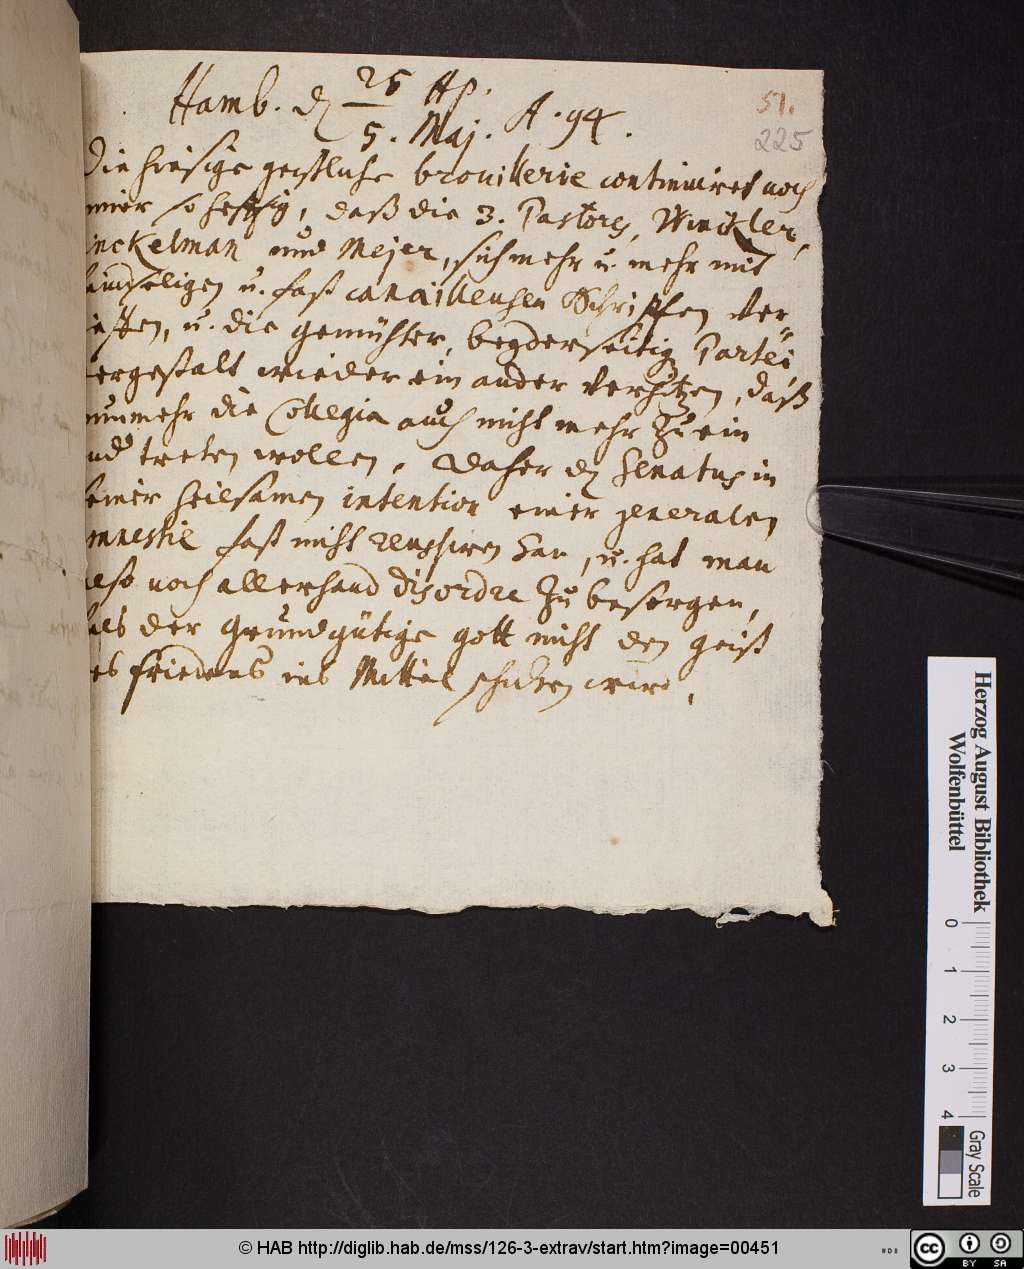 Hamb. d 25 Ap.
5. Maj. A. 94.
51.
225
Die hiesige geistliche brouillerie continuiret noch
mier so hefftig, daß die 3. Pastores, Winckler,
inckelman und Mejer, sich mehr u. mehr mit
eindseligen u. fast canailleusen Schrifften ver-
iefften, u. die gemühter, beyderseitig Partei
ergestalt wieder ein ander verhitzen, daß
nunmehr die Collegia auch nicht mehr zu ein
nd treten wollen. Daher d Senatus in
seiner heilsamen intention einer generalen
mnestie fast nicht reussiren kan, u. hat man
also noch allerhand disordre zu besorgen,
als der grundgütige gott nicht den geist
es friedens ins Mittel schicken wird.
Herzog August Bibliothek
Wolfenbüttel
0 1 2 3 4
Gray Scale
© HAB http://diglib.hab.de/mss/126-3-extrav/start.htm?image=00451
cc BY SA